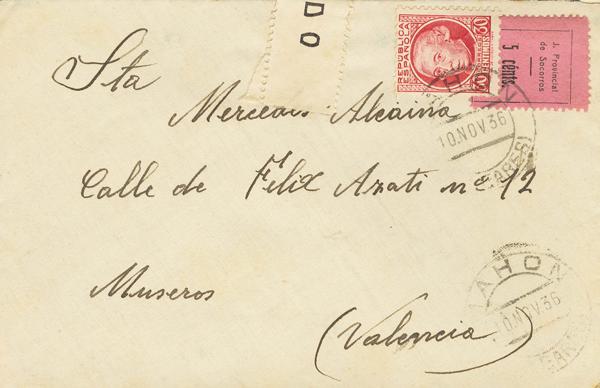 DO
REPUBLICA
ESPAÑOLA
30
CENTIMOS
J. Provincial
de Socorros
5 cénts
Sta
Mercedes Alcaina
10.NOV.36
Calle de Félix Azati nº 12
MAHON
10.NOV.36
Museros
(Valencia)